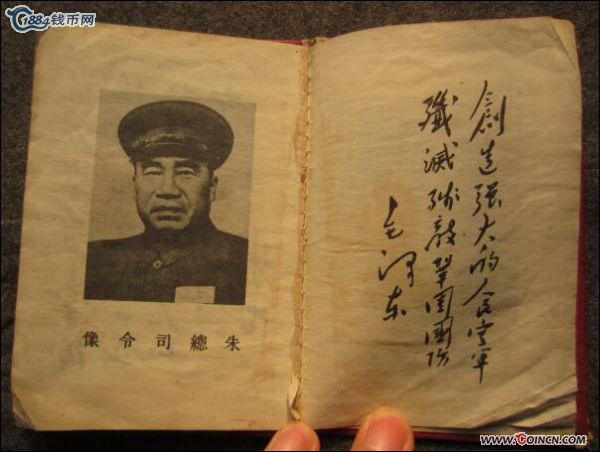 1884钱币网
創造强大的人民空軍
殲滅殘敵鞏固國防
毛泽东
朱總司令像
www.COINCN.com